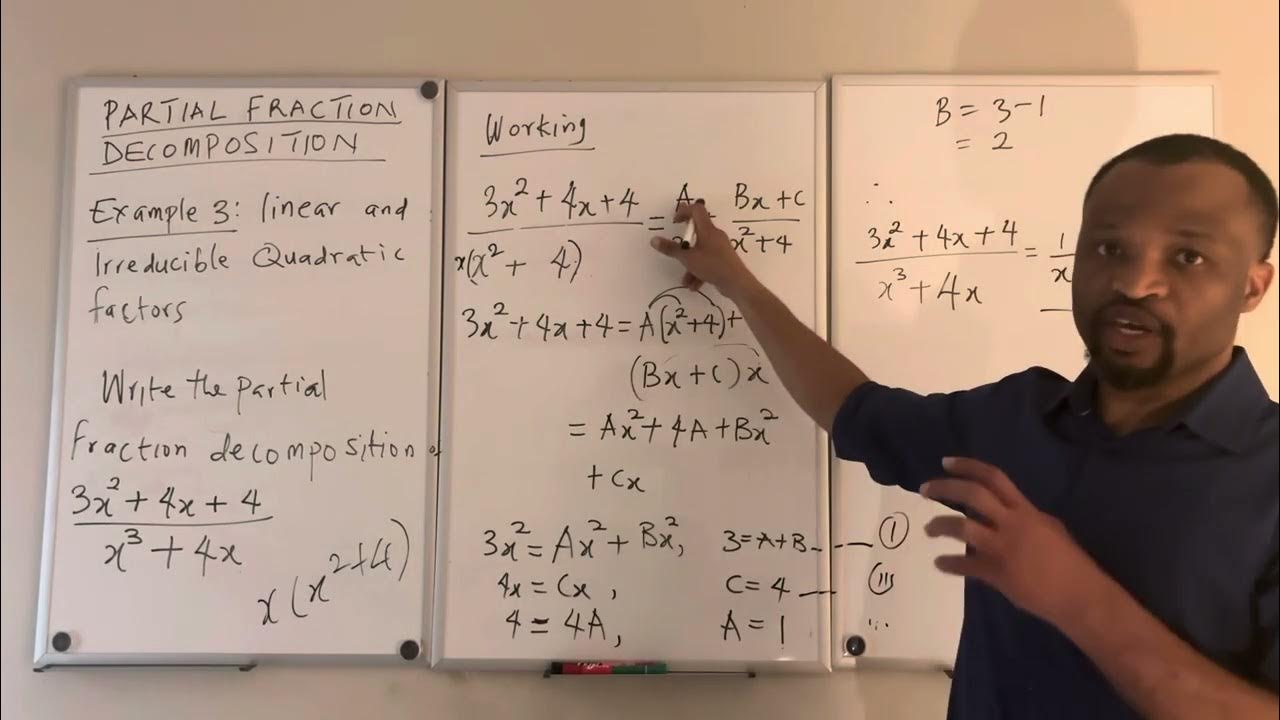 PARTIAL FRACTION
DECOMPOSITION
Example 3: linear and
Irreducible Quadratic
factors
Write the partial
fraction decomposition of
3x² + 4x + 4
x³ + 4x
x(x²+4)
Working
3x² + 4x + 4 = A Bx + C
x(x² + 4) x² + 4
3x² + 4x + 4 = A(x² + 4) +
(Bx + C)x
= Ax² + 4A + Bx²
+ Cx
3x² = Ax² + Bx², 3 = A + B --- (I)
4x = Cx, C = 4 --- (III)
4 = 4A, A = 1 ...
B = 3 - 1
= 2
∴
3x² + 4x + 4 = 1
x³ + 4x x